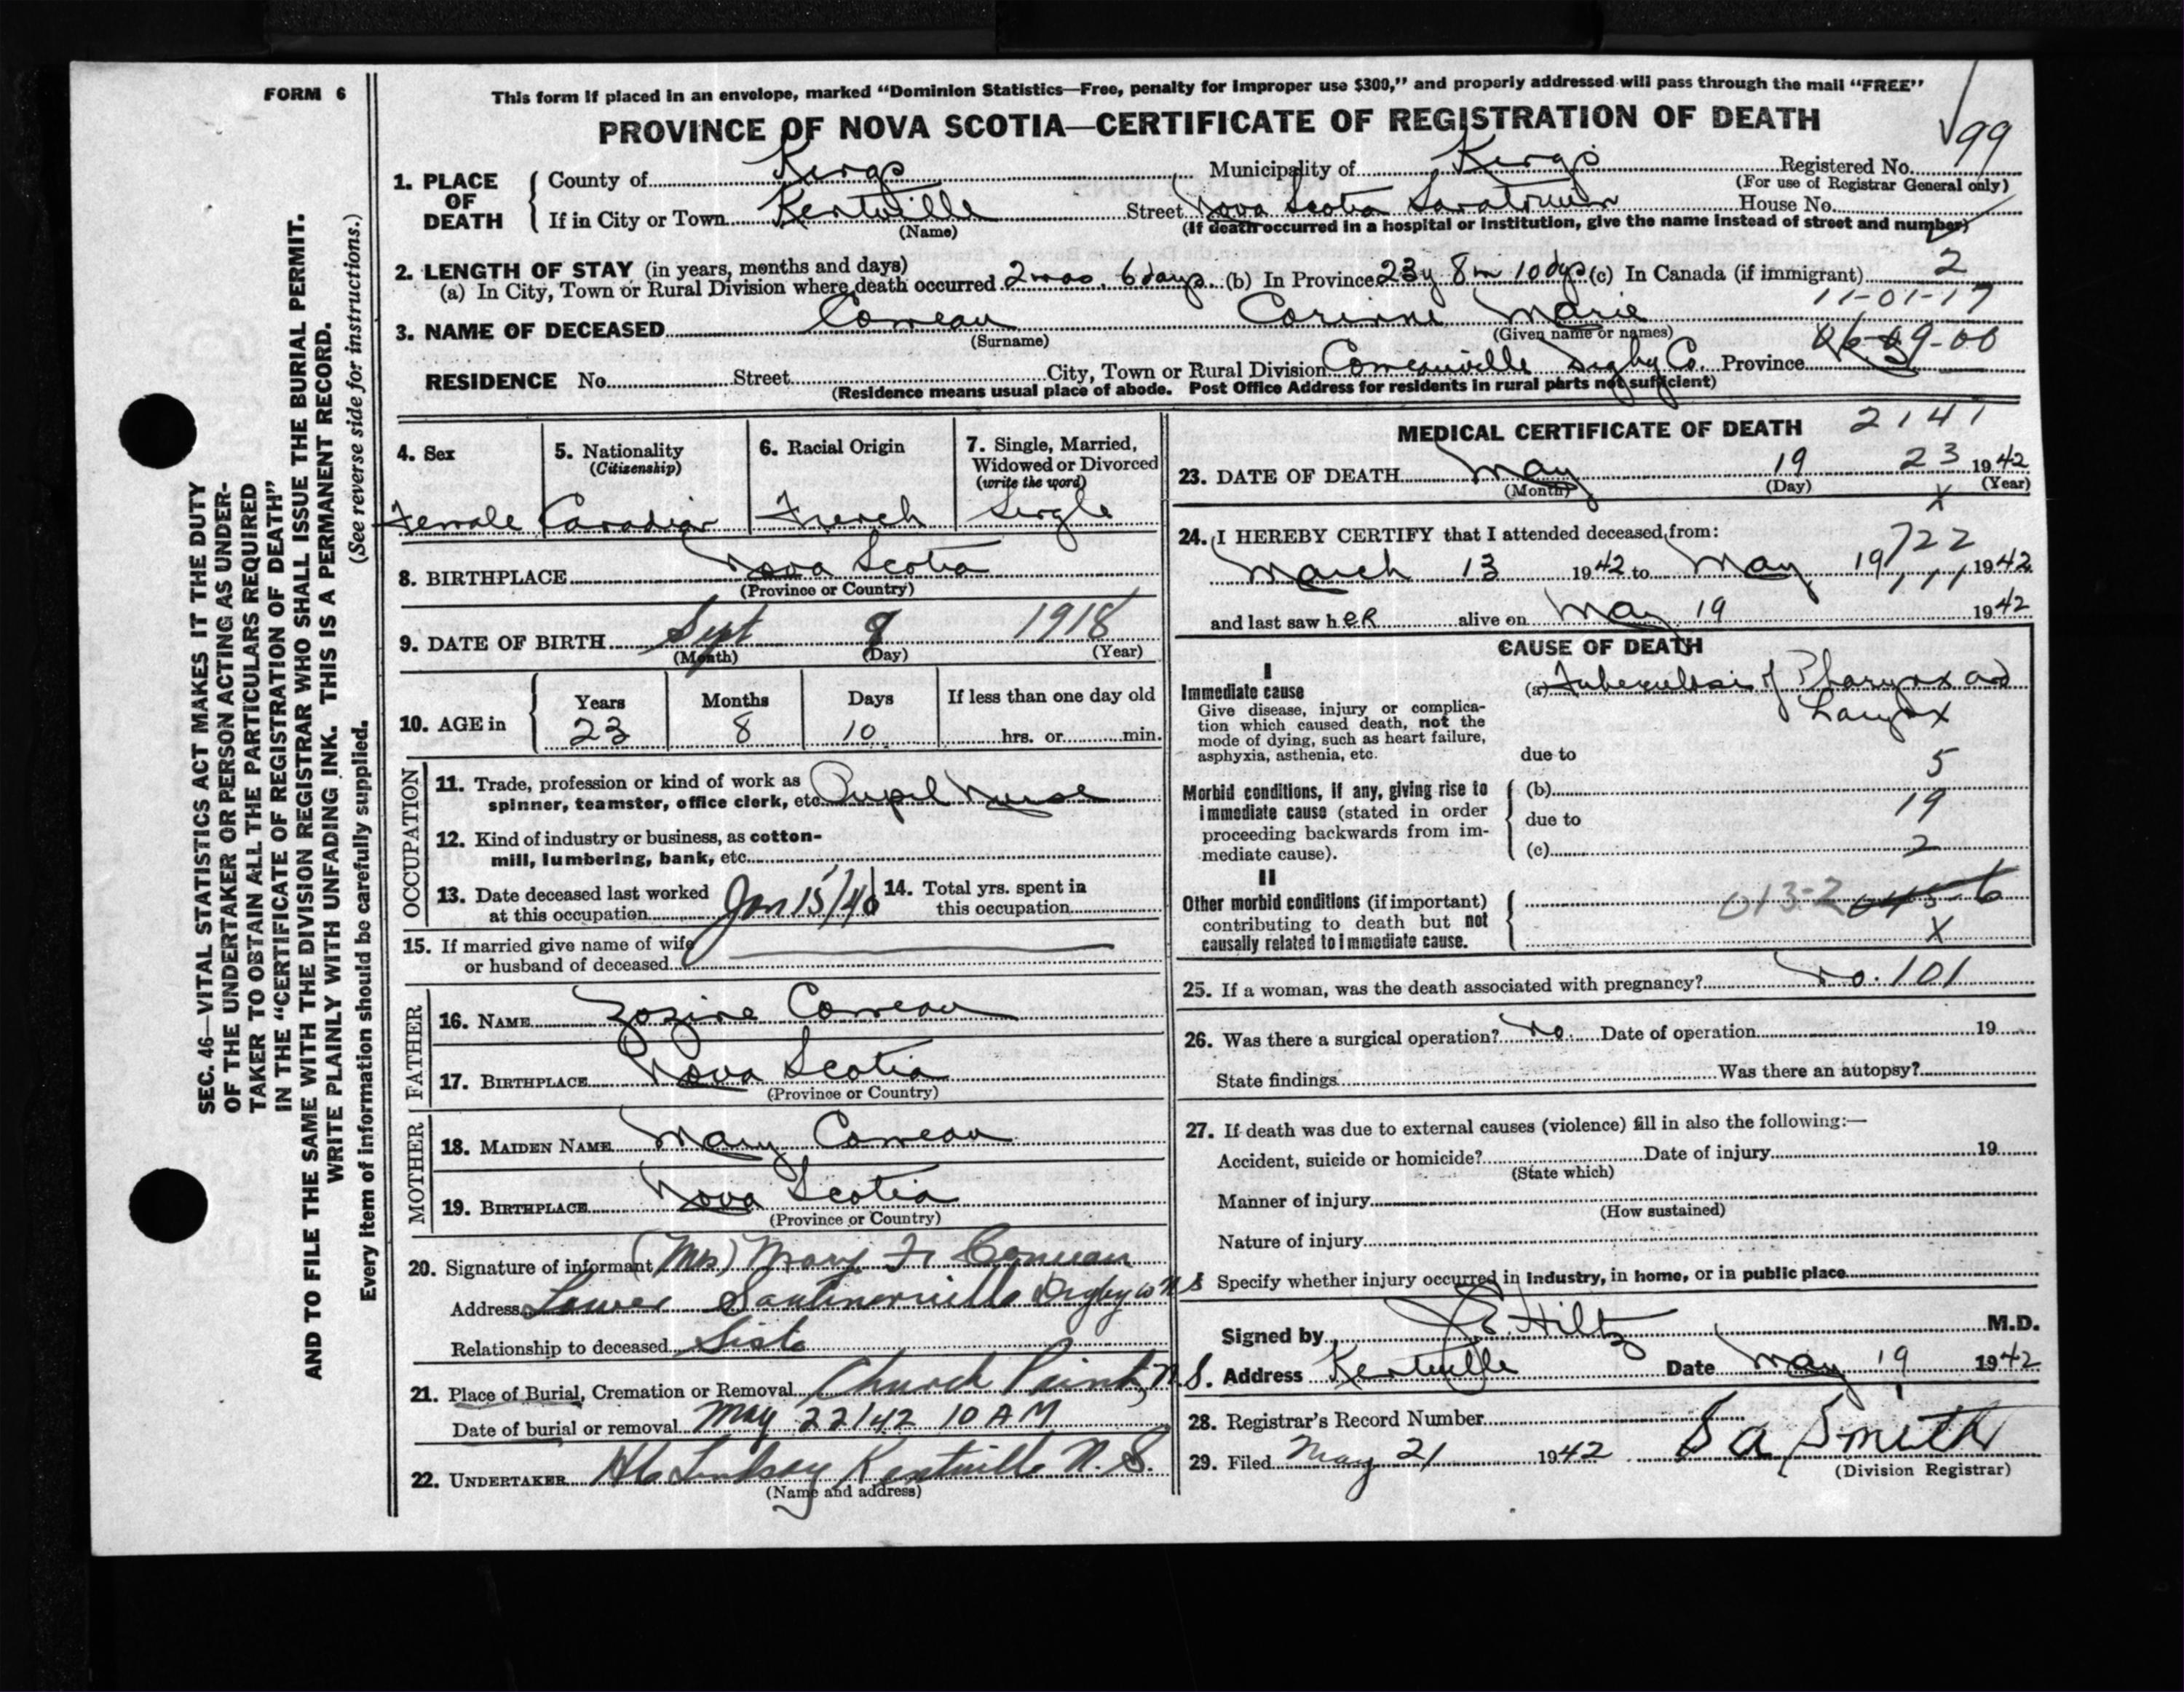 FORM 6
This form if placed in an envelope, marked “Dominion Statistics—Free, penalty for improper use $300,” and properly addressed will pass through the mail “FREE”
PROVINCE OF NOVA SCOTIA—CERTIFICATE OF REGISTRATION OF DEATH
99
1. PLACE OF DEATH
County of Kings Municipality of Kings Registered No.
(For use of Registrar General only)
If in City or Town Kentville Street Nova Scotia Sanatorium House No.
(Name) (If death occurred in a hospital or institution, give the name instead of street and number)
2. LENGTH OF STAY (in years, months and days)
(a) In City, Town or Rural Division where death occurred 2 mos. 6 days. (b) In Province 23y 8m 10 dys (c) In Canada (if immigrant) 2
11-01-17
3. NAME OF DECEASED Comeau Corinne Marie
(Surname) (Given name or names)
06-09-00
RESIDENCE No. Street City, Town or Rural Division Comeauville Digby Co. Province N.S.
(Residence means usual place of abode. Post Office Address for residents in rural parts not sufficient)
4. Sex Female
5. Nationality (Citizenship) Canadian
6. Racial Origin French
7. Single, Married, Widowed or Divorced (write the word) Single
8. BIRTHPLACE Nova Scotia
(Province or Country)
9. DATE OF BIRTH Sept 9 1918
(Month) (Day) (Year)
10. AGE in Years Months Days If less than one day old
23 8 10 hrs. or min.
OCCUPATION
11. Trade, profession or kind of work as
spinner, teamster, office clerk, etc. Pupil Nurse
12. Kind of industry or business, as cotton-
mill, lumbering, bank, etc.
13. Date deceased last worked
at this occupation Jan 15/40
14. Total yrs. spent in
this occupation
15. If married give name of wife
or husband of deceased
FATHER
16. NAME Zozime Comeau
17. BIRTHPLACE Nova Scotia
(Province or Country)
MOTHER
18. MAIDEN NAME Mary Comeau
19. BIRTHPLACE Nova Scotia
(Province or Country)
20. Signature of informant (Mrs) Mary F. Comeau
Address Lower Saulnierville Digby Co N S
Relationship to deceased Sister
21. Place of Burial, Cremation or Removal Church Point, N.S.
Date of burial or removal May 22/42 10 AM
22. UNDERTAKER Lindsay Kentville N. S.
(Name and address)
MEDICAL CERTIFICATE OF DEATH 2141
23. DATE OF DEATH May 19 23 1942
(Month) (Day) (Year)
X
24. I HEREBY CERTIFY that I attended deceased from:
722
March 13 1942 to May 19 1942
and last saw her alive on May 19 1942
CAUSE OF DEATH
I
Immediate cause
Give disease, injury or complica-
tion which caused death, not the
mode of dying, such as heart failure,
asphyxia, asthenia, etc.
(a) Tuberculosis of Pharynx and
Larynx
due to
5
Morbid conditions, if any, giving rise to
immediate cause (stated in order
proceeding backwards from im-
mediate cause).
(b)
19
due to
(c)
2
II
Other morbid conditions (if important)
contributing to death but not
causally related to immediate cause.
013-2
X
25. If a woman, was the death associated with pregnancy? No. 101
26. Was there a surgical operation? No. Date of operation 19
State findings Was there an autopsy?
27. If death was due to external causes (violence) fill in also the following:—
Accident, suicide or homicide? Date of injury 19
(State which)
Manner of injury
(How sustained)
Nature of injury
Specify whether injury occurred in industry, in home, or in public place
Signed by J.E. Hiltz M.D.
Address Kentville Date May 19 1942
28. Registrar's Record Number
29. Filed May 21 1942 Smith
(Division Registrar)
SEC. 46—VITAL STATISTICS ACT MAKES IT THE DUTY
OF THE UNDERTAKER OR PERSON ACTING AS UNDER-
TAKER TO OBTAIN ALL THE PARTICULARS REQUIRED
IN THE “CERTIFICATE OF REGISTRATION OF DEATH”
AND TO FILE THE SAME WITH THE DIVISION REGISTRAR WHO SHALL ISSUE THE BURIAL PERMIT.
WRITE PLAINLY WITH UNFADING INK. THIS IS A PERMANENT RECORD.
(See reverse side for instructions.)
Every item of information should be carefully supplied.